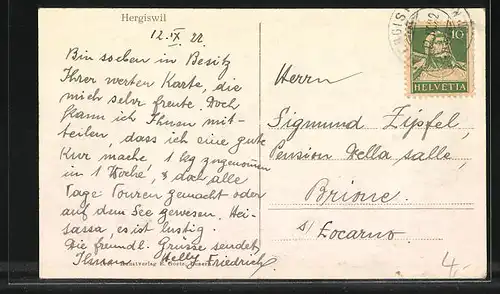 Hergiswil
12. IX. 22.
Bin soeben in Besitz
Ihrer werten Karte, die
mich sehr freute. Doch
kann ich Ihnen mit-
teilen, dass ich eine gute
Kur mache, 1 kg zugenommen
in 1 Woche, & das alle
Tage Touren gemacht oder
auf dem See gewesen. Hei-
sassa, es ist lustig.
Die freundl. Grüsse sendet
Ihnen Nelly Friedrich
10
HELVETIA
Herrn
Sigmund Zipfel,
Pension Della Salle,
Brione.
s/ Locarno.
4.-